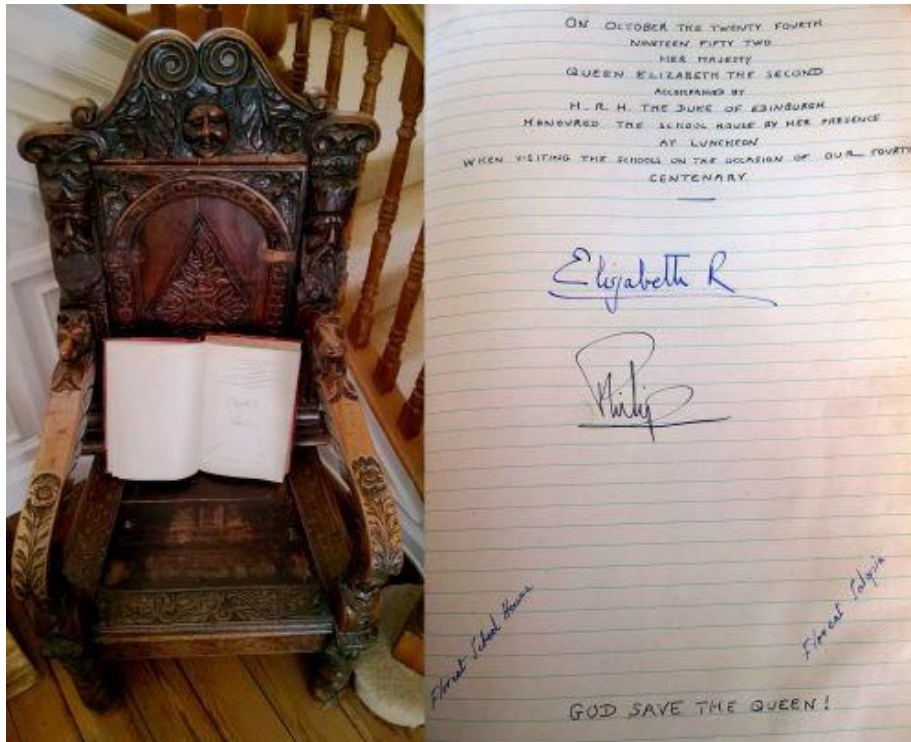 ON OCTOBER THE TWENTY FOURTH
NINETEEN FIFTY TWO
HER MAJESTY
QUEEN ELIZABETH THE SECOND
ACCOMPANIED BY
H. R. H. THE DUKE OF EDINBURGH
HONOURED THE SCHOOL HOUSE BY HER PRESENCE
AT LUNCHEON
WHEN VISITING THE SCHOOLS ON THE OCCASION OF OUR FOURTH
CENTENARY
Elizabeth R
Philip
Floreat School House
Floreat Salopia
GOD SAVE THE QUEEN!